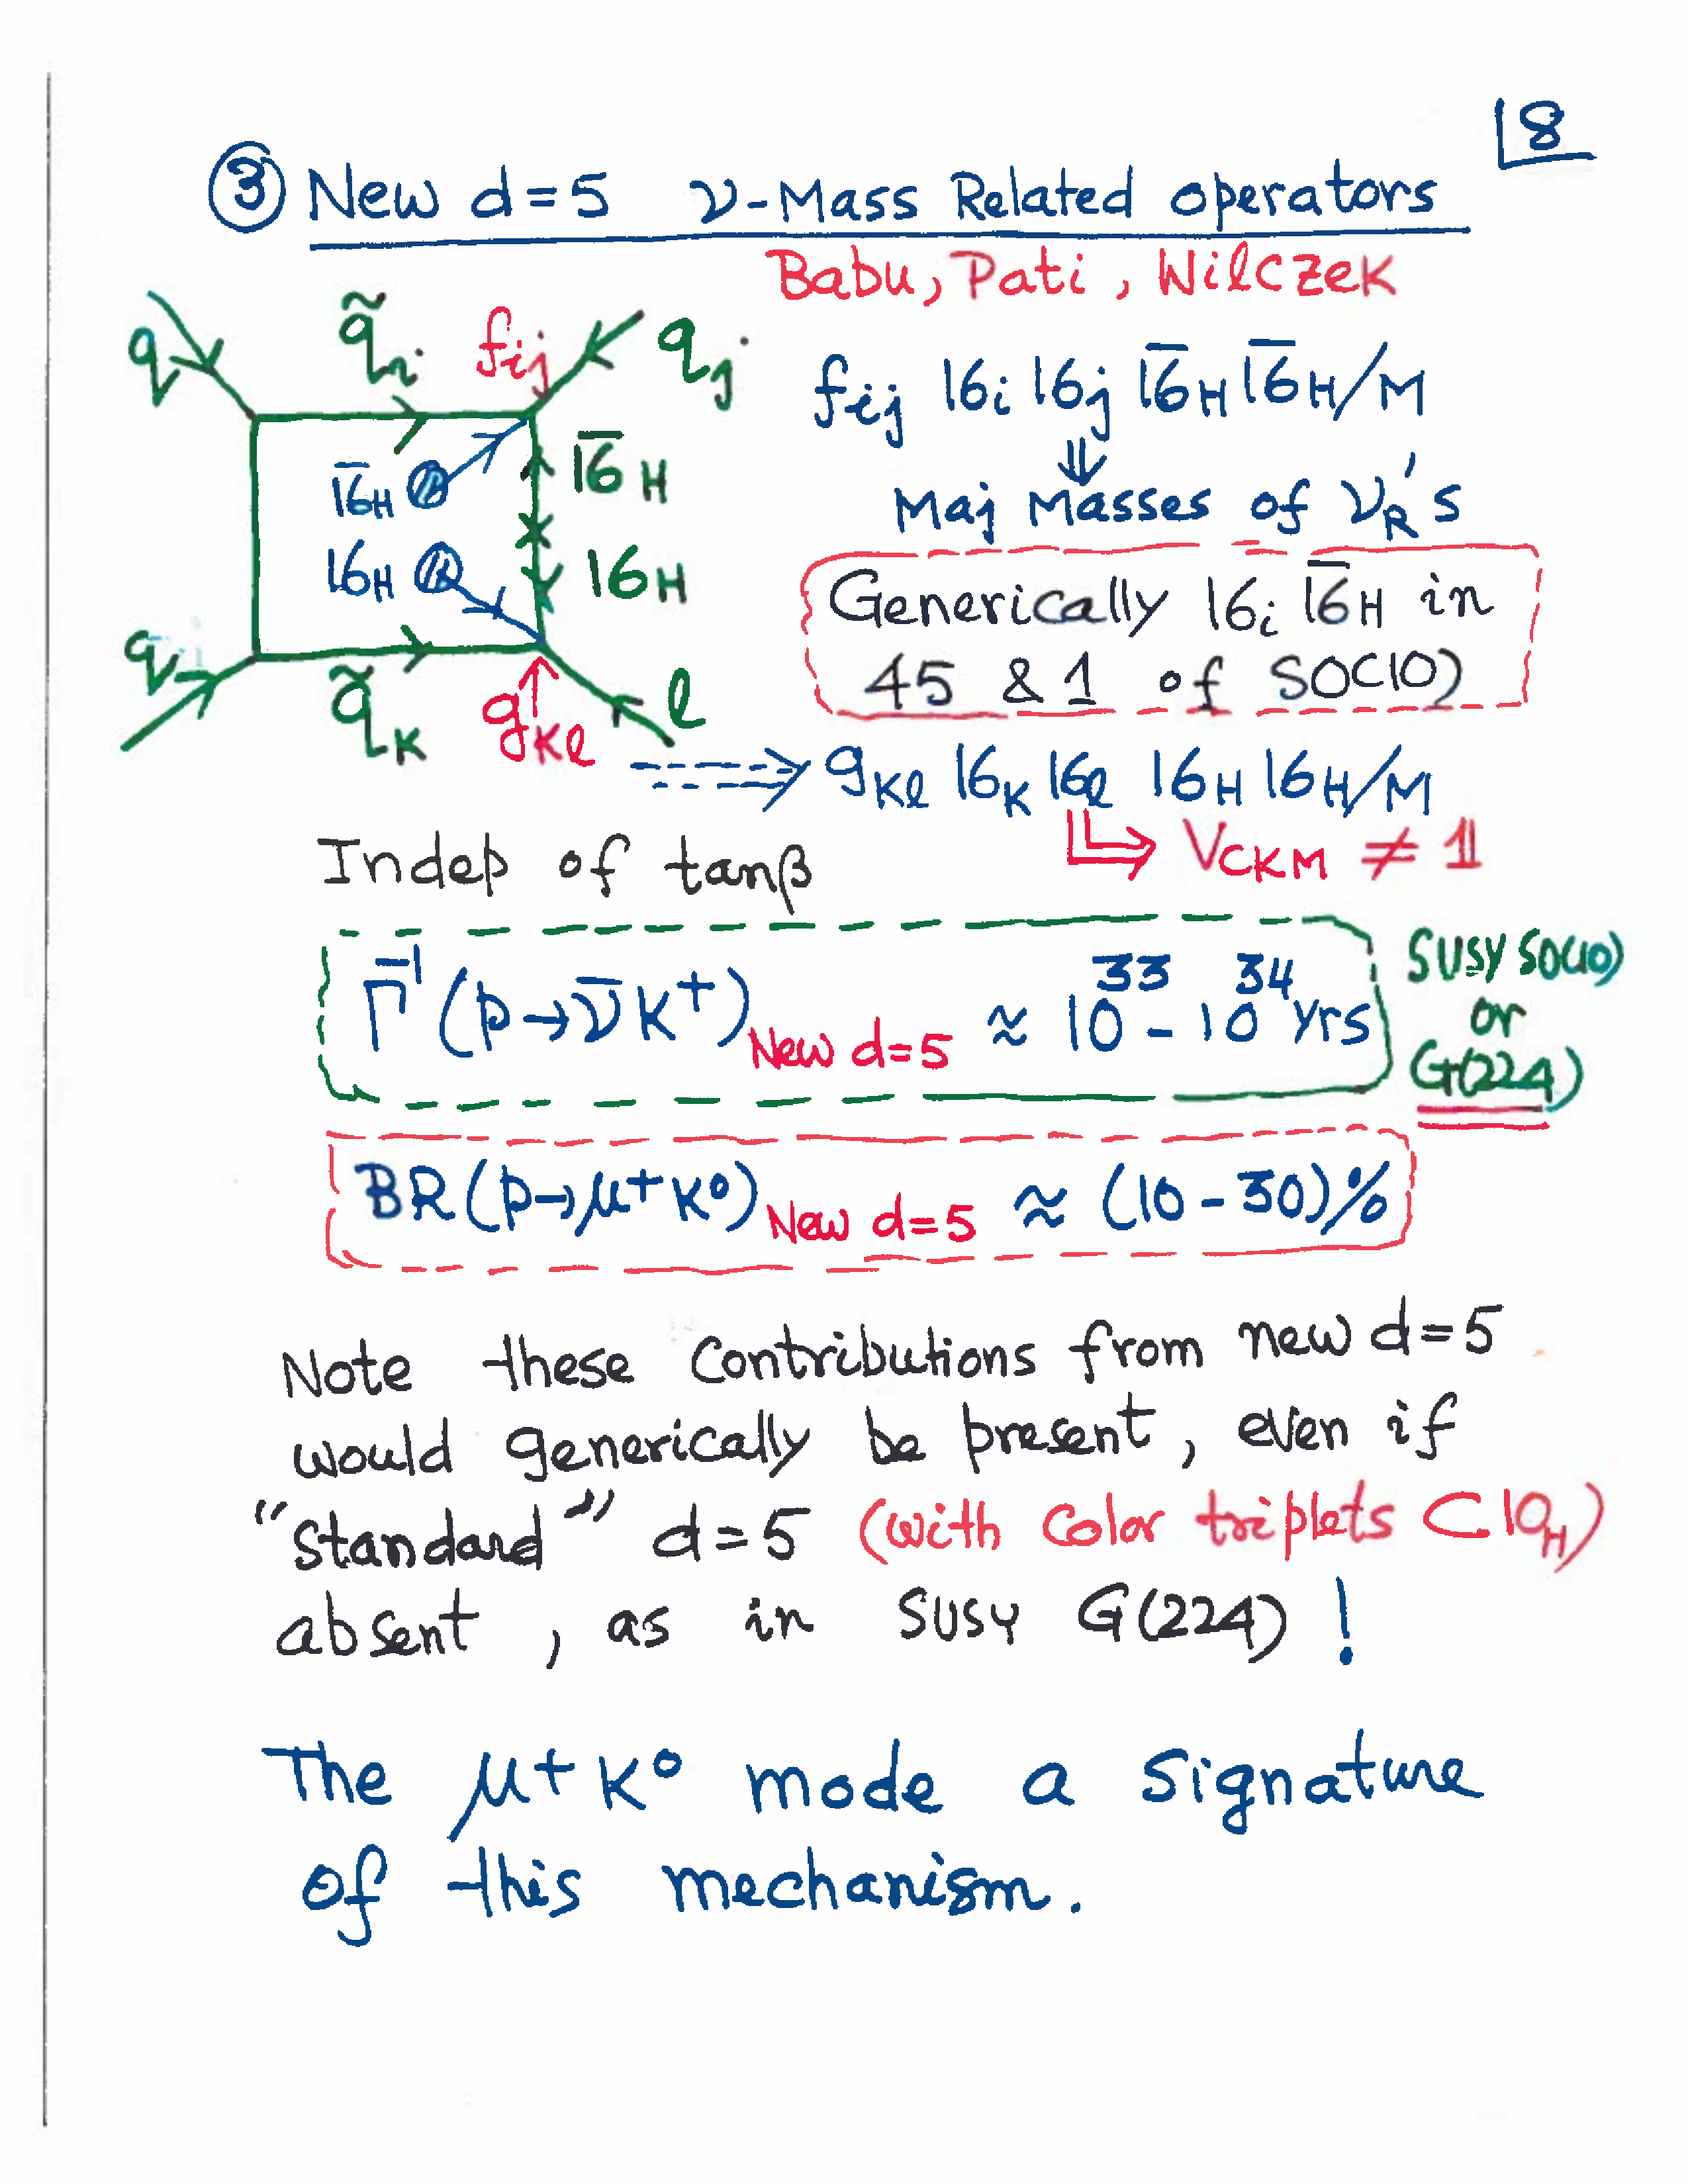 8
③ New d=5 ν-Mass Related operators
Babu, Pati, Wilczek
q q̃i fij qj
fij 16i 16j 1̅6̅H 1̅6̅H/M
⇓
1̅6̅H 1̅6̅H
Maj Masses of νR's
16H 16H
Generically 16i 1̅6̅H in
45 & 1 of SO(10)
q q̃K gKl l
gKl 16K 16l 16H 16H/M
VCKM ≠ 1
Indep of tanβ
Γ⁻¹(p→ν̅K⁺)New d=5 ≈ 10³³-10³⁴ yrs
SUSY SO(10)
or
G(224)
BR(p→μ⁺K⁰)New d=5 ≈ (10-30)%
Note these contributions from new d=5
would generically be present, even if
"Standard" d=5 (with color triplets ⊂ 10H)
absent, as in SUSY G(224) !
The μ⁺K⁰ mode a signature
of this mechanism.